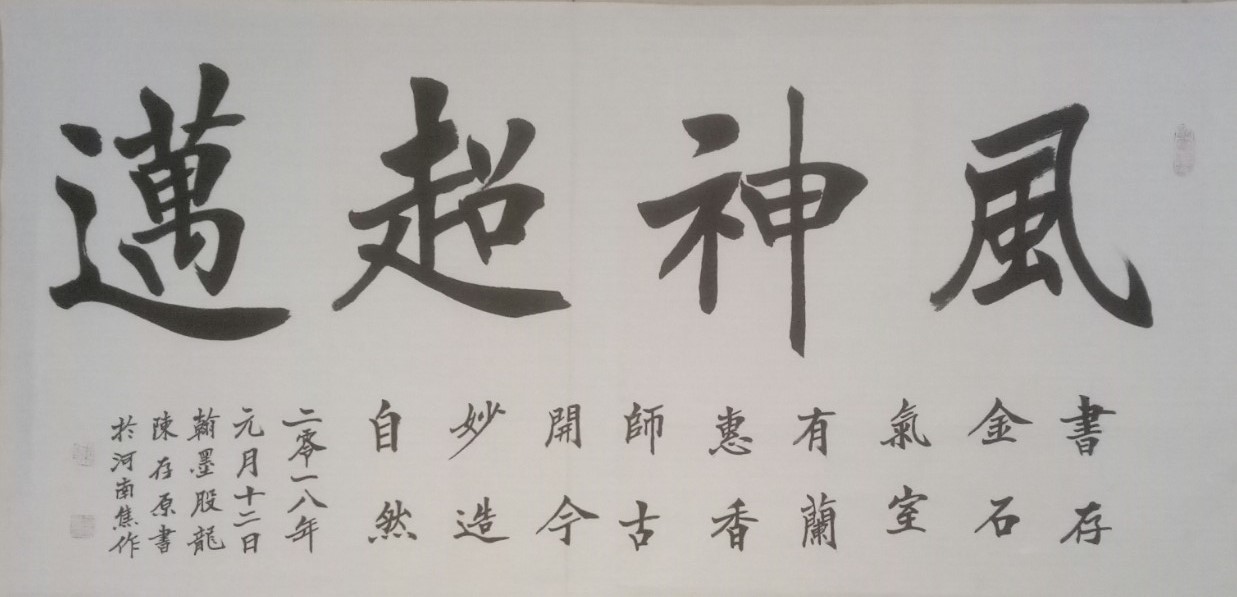 風神超邁
書存
金石
氣室
有蘭
惠香
師古
開今
妙造
自然
二零一八年
元月十二日
翰墨股龍
陳存原書
於河南焦作